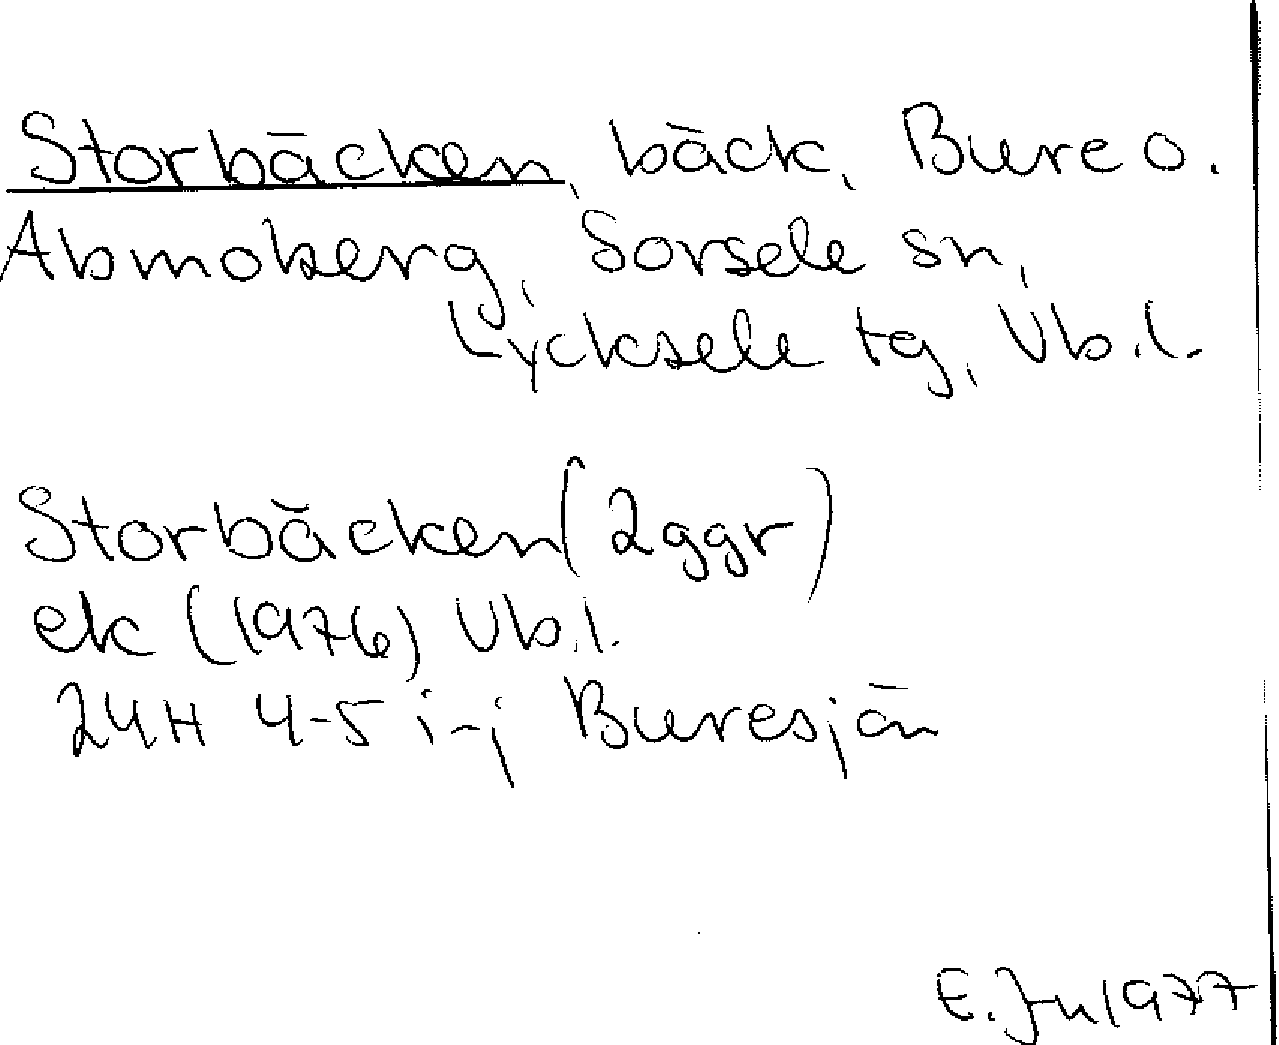 Storbäcken, bäck, Bure o.
Abmoberg, Sorsele sn,
Lycksele tg, Vb.l.
Storbäcken (2ggr)
ek (1976) Vb.l.
24H 4-5 i-j Buresjön
E. Ju 1977